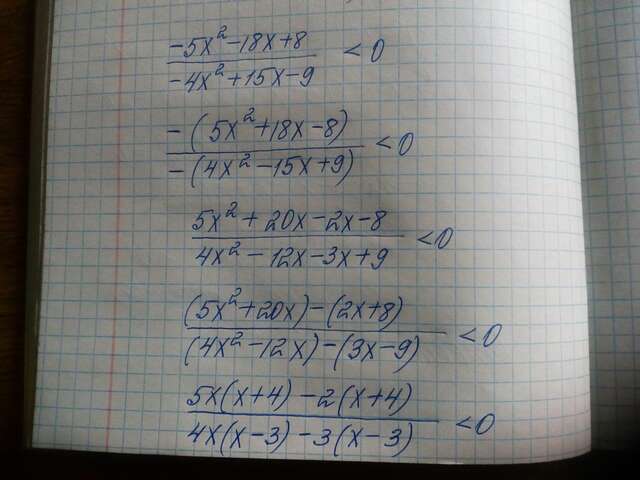 (-5x²-18x+8)/(-4x²+15x-9) <0
(-(5x²+18x-8))/(-(4x²-15x+9)) <0
(5x²+20x-2x-8)/(4x²-12x-3x+9) <0
((5x²+20x)-(2x+8))/((4x²-12x)-(3x-9)) <0
(5x(x+4)-2(x+4))/(4x(x-3)-3(x-3)) <0